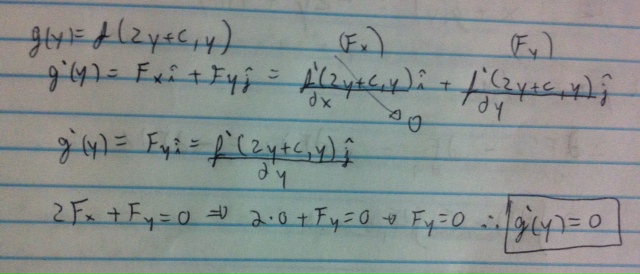 g(y) = f(2y+c, y) (Fx) (Fy)
g'(y) = Fx î + Fy ĵ = f'(2y+c, y) î / dx → 0 + f'(2y+c, y) ĵ / dy
g'(y) = Fy ĵ = f'(2y+c, y) ĵ / dy
2Fx + Fy = 0 ⇒ 2·0 + Fy = 0 → Fy = 0 ∴ g'(y) = 0